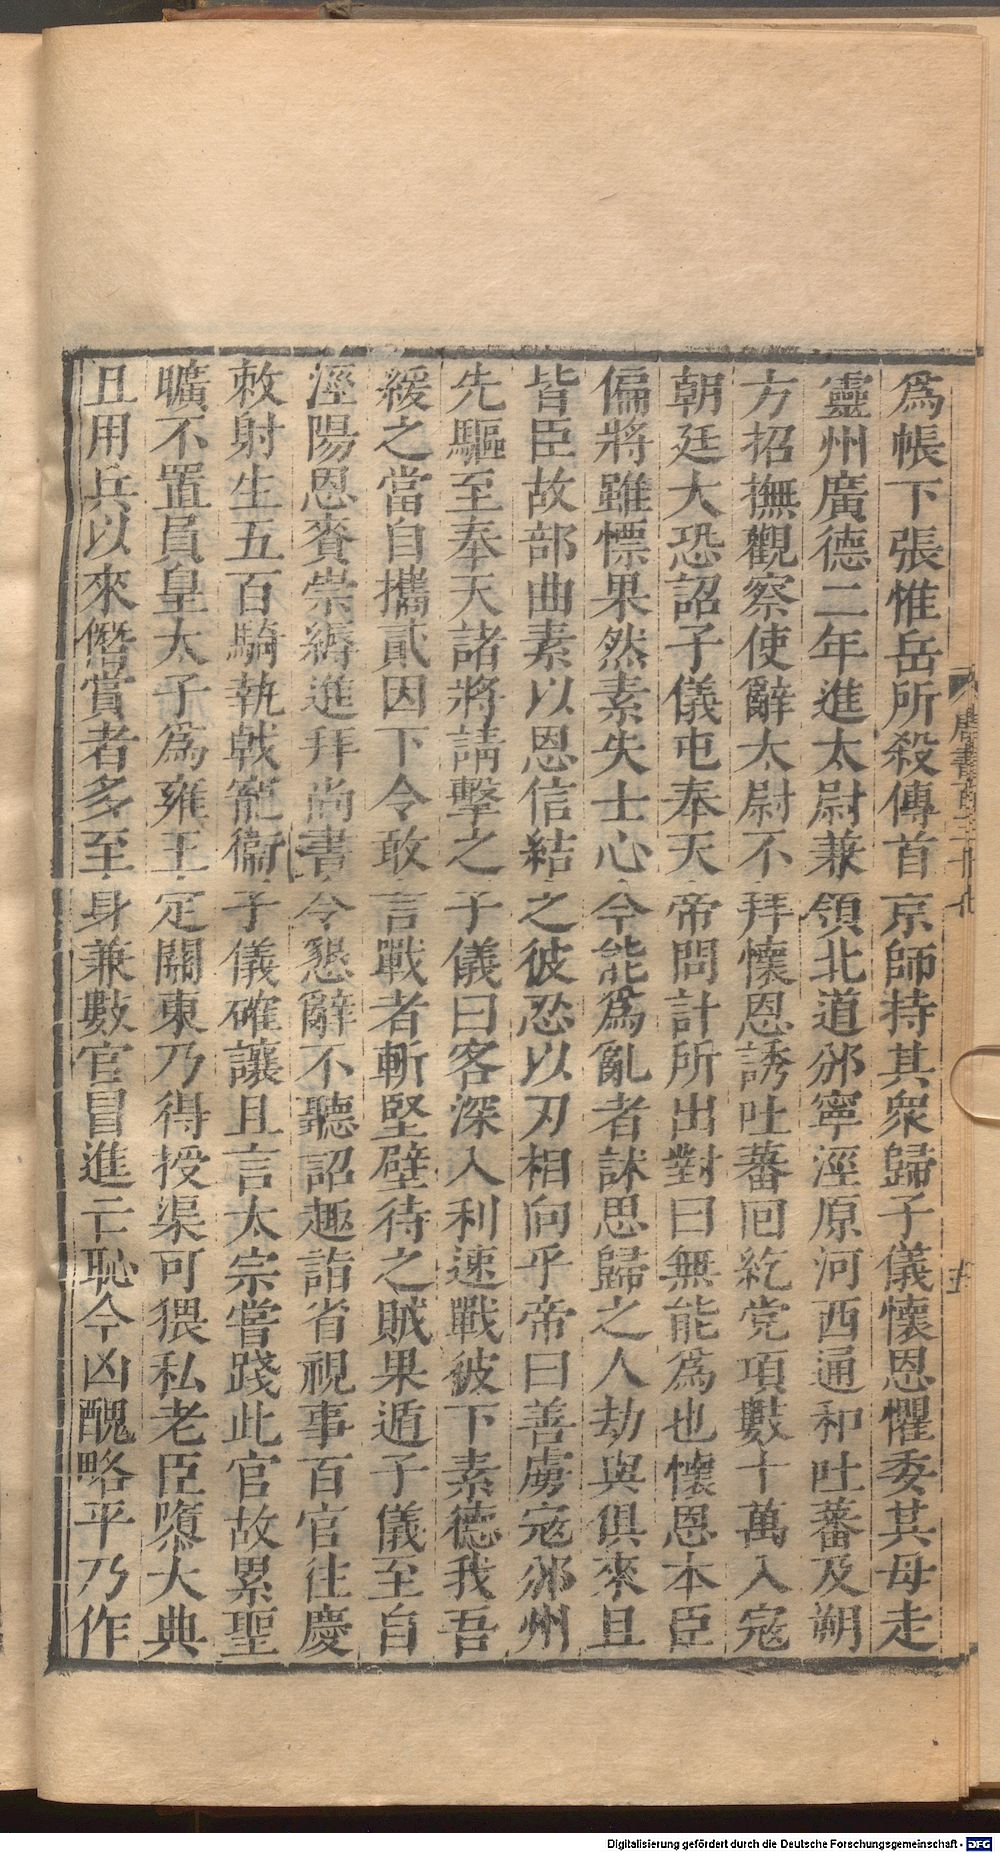 爲帳下張惟岳所殺傳首京師持其衆歸子儀懷恩懼委其母走
靈州廣德二年進太尉兼領北道邠寧涇原河西通和吐蕃及朔
方招撫觀察使辭太尉不拜懷恩誘吐蕃囘紇党項數十萬入寇
朝廷大恐詔子儀屯奉天帝問計所出對曰無能爲也懷恩本臣
偏將雖慓果然素失士心今能爲亂者訹思歸之人劫與俱來且
皆臣故部曲素以恩信結之彼忍以刃相向乎帝曰善虜寇邠州
先驅至奉天諸將請擊之子儀曰客深入利速戰彼下素德我吾
緩之當自攜貳因下令敢言戰者斬堅壁待之賊果遁子儀至自
涇陽恩賚崇縟進拜尚書令懇辭不聽詔趣詣省視事百官往慶
敕射生五百騎執戟寵衞子儀確讓且言太宗嘗踐此官故累聖
曠不置員皇太子爲雍王定關東乃得授渠可猥私老臣隳大典
且用兵以來僭賞者多至身兼數官冒進亡恥今凶醜略平乃作
唐書百三十七
Digitalisierung gefördert durch die Deutsche Forschungsgemeinschaft - DFG